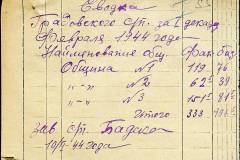 Сводка
Градовского с/п. за I декаду
Февраля 1944 года
Наименование общ.
Община №1 119 76
-"- №2 62 39
-"- №3 151
Итого 333
Зав. с/п.
10/II 44 года